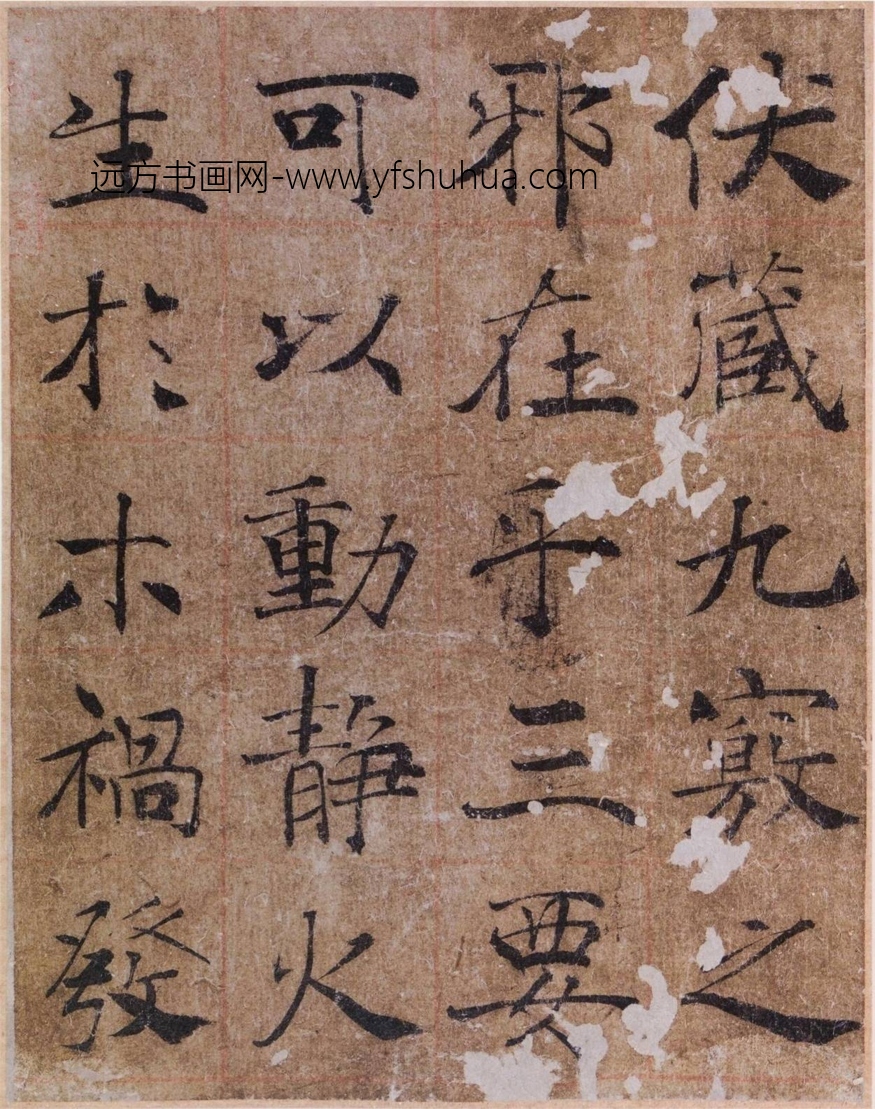 伏藏九竅之
邪在乎三要
可以動靜火
生於木禍發
远方书画网-www.yfshuhua.com